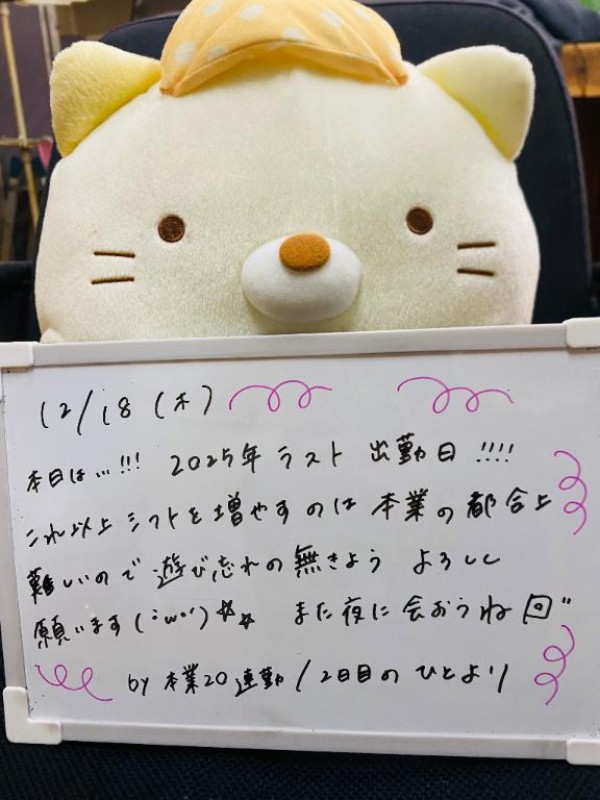 12/18 (木)
本日は...!!! 2025年ラスト 出勤日 !!!!
これ以上シフトを増やすのは 本業の都合上
難しいので 遊び忘れの無きよう よろしく
願います(´･ω･`)☆☆ また夜に会おうね
by 本業20連勤/2日目の ひとより